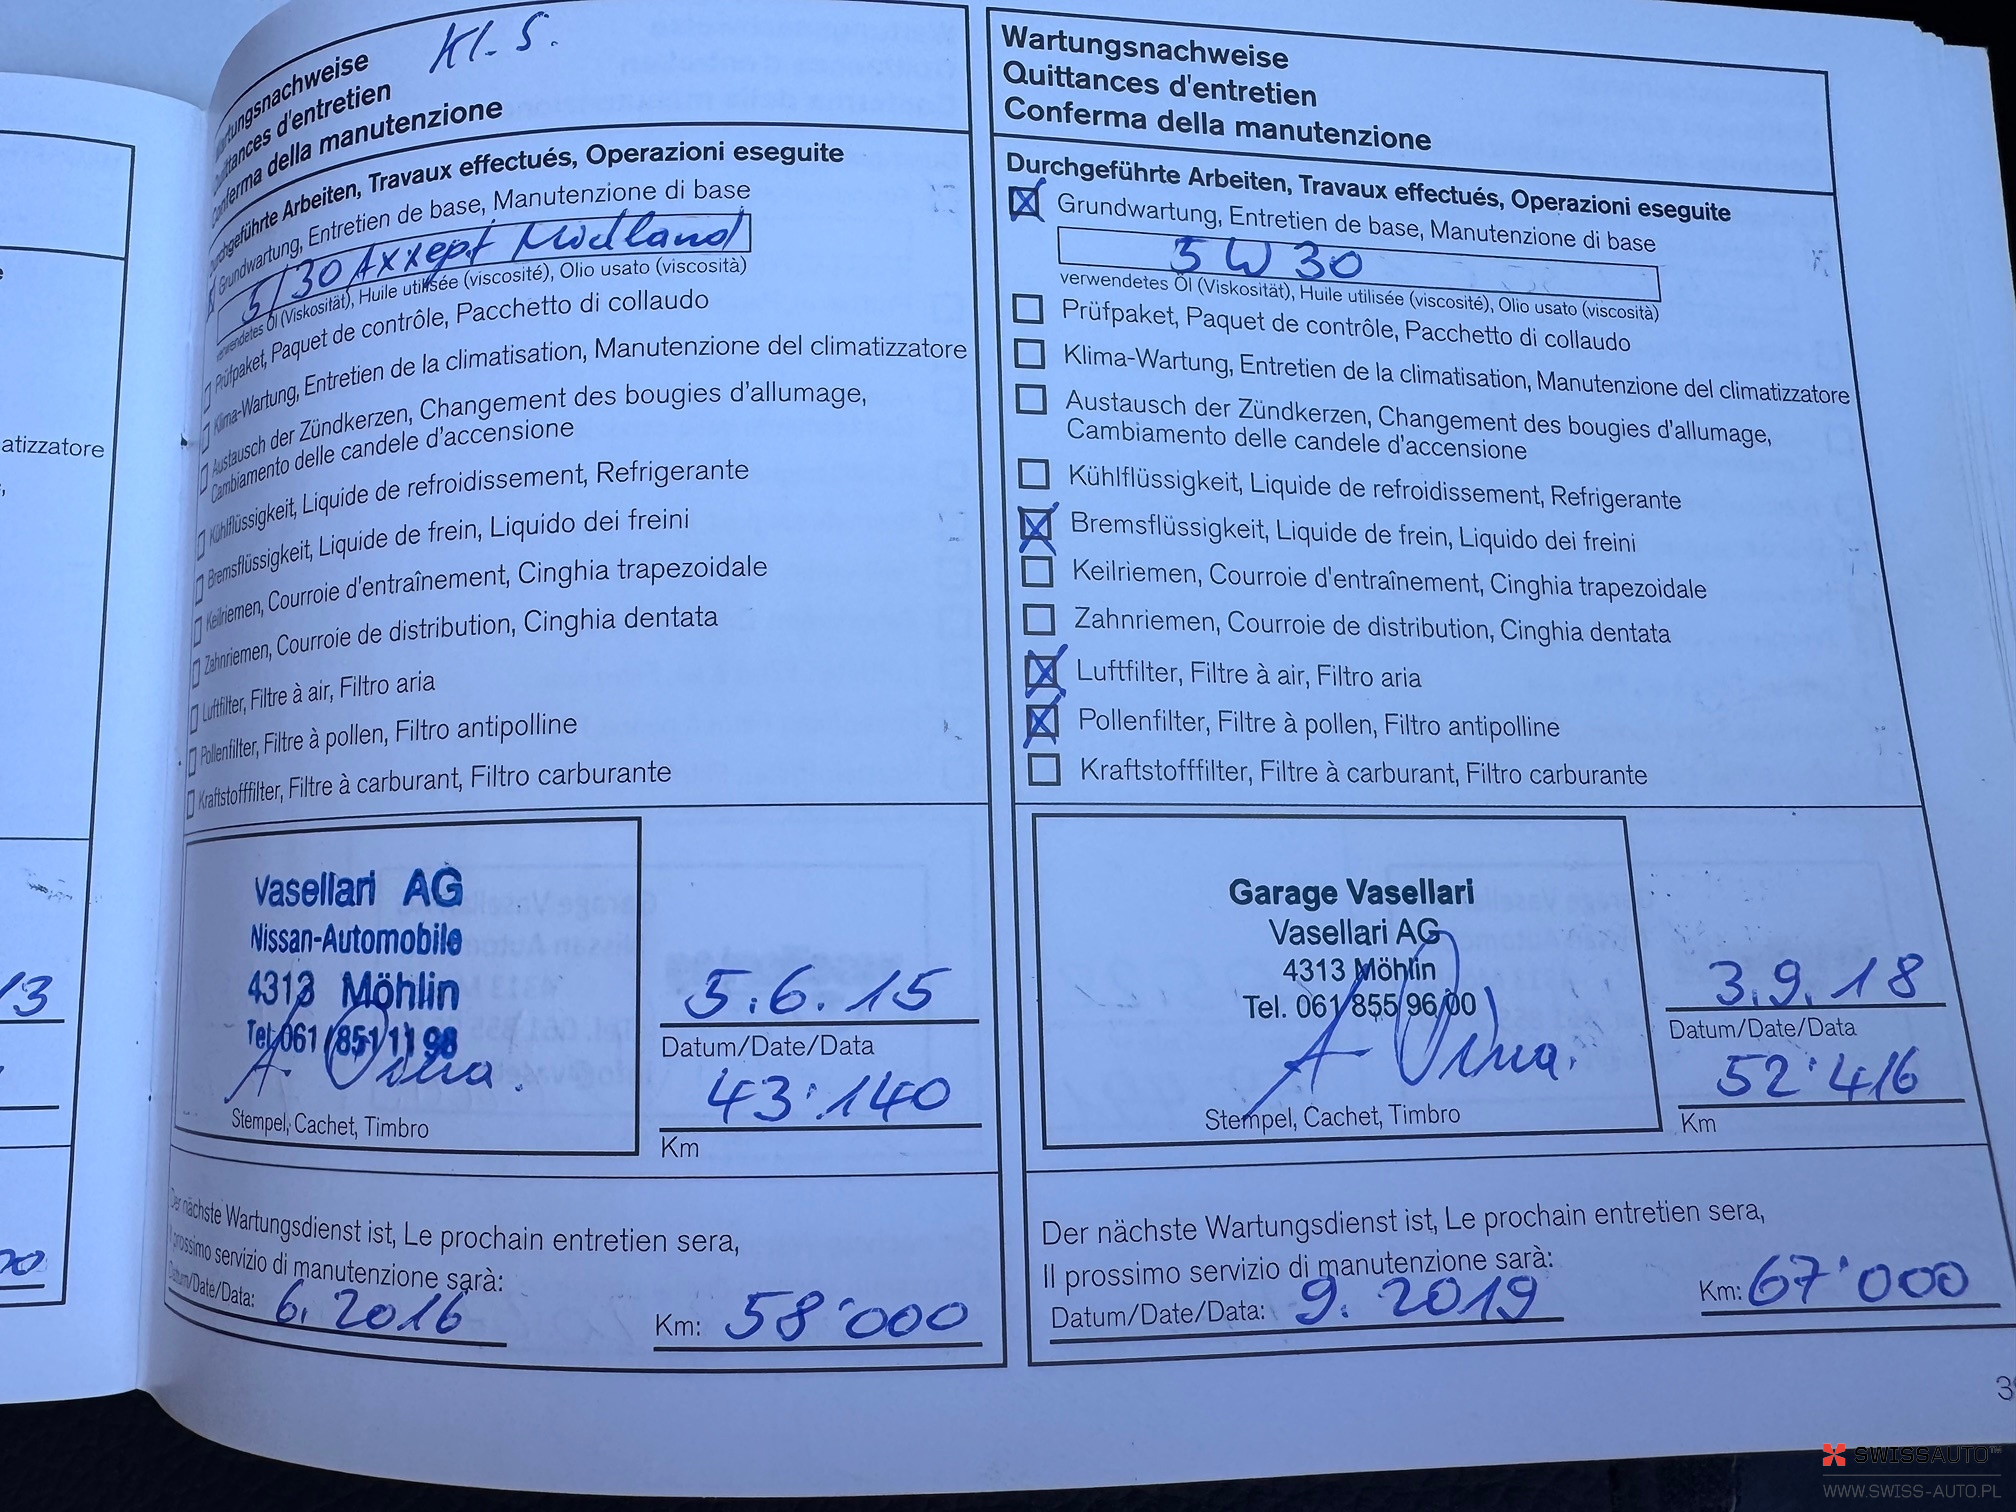 13
atizzatore
Kl. S.
Wartungsnachweise
Quittances d'entretien
Conferma della manutenzione
Durchgeführte Arbeiten, Travaux effectués, Operazioni eseguite
Grundwartung, Entretien de base, Manutenzione di base
5/30 Axxept Midland
verwendetes Öl (Viskosität), Huile utilisée (viscosité), Olio usato (viscosità)
Prüfpaket, Paquet de contrôle, Pacchetto di collaudo
Klima-Wartung, Entretien de la climatisation, Manutenzione del climatizzatore
Austausch der Zündkerzen, Changement des bougies d'allumage,
Cambiamento delle candele d'accensione
Kühlflüssigkeit, Liquide de refroidissement, Refrigerante
Bremsflüssigkeit, Liquide de frein, Liquido dei freini
Keilriemen, Courroie d'entraînement, Cinghia trapezoidale
Zahnriemen, Courroie de distribution, Cinghia dentata
Luftfilter, Filtre à air, Filtro aria
Pollenfilter, Filtre à pollen, Filtro antipolline
Kraftstofffilter, Filtre à carburant, Filtro carburante
Vasellari AG
Nissan-Automobile
4313 Möhlin
Tel. 061 / 851 11 98
Stempel, Cachet, Timbro
5.6.15
Datum/Date/Data
43'140
Km
Der nächste Wartungsdienst ist, Le prochain entretien sera,
Il prossimo servizio di manutenzione sarà:
Datum/Date/Data: 6. 2016
Km: 58'000
Wartungsnachweise
Quittances d'entretien
Conferma della manutenzione
Durchgeführte Arbeiten, Travaux effectués, Operazioni eseguite
Grundwartung, Entretien de base, Manutenzione di base
5 W 30
verwendetes Öl (Viskosität), Huile utilisée (viscosité), Olio usato (viscosità)
Prüfpaket, Paquet de contrôle, Pacchetto di collaudo
Klima-Wartung, Entretien de la climatisation, Manutenzione del climatizzatore
Austausch der Zündkerzen, Changement des bougies d'allumage,
Cambiamento delle candele d'accensione
Kühlflüssigkeit, Liquide de refroidissement, Refrigerante
Bremsflüssigkeit, Liquide de frein, Liquido dei freini
Keilriemen, Courroie d'entraînement, Cinghia trapezoidale
Zahnriemen, Courroie de distribution, Cinghia dentata
Luftfilter, Filtre à air, Filtro aria
Pollenfilter, Filtre à pollen, Filtro antipolline
Kraftstofffilter, Filtre à carburant, Filtro carburante
Garage Vasellari
Vasellari AG
4313 Möhlin
Tel. 061 855 96 00
Stempel, Cachet, Timbro
3.9.18
Datum/Date/Data
52'416
Km
Der nächste Wartungsdienst ist, Le prochain entretien sera,
Il prossimo servizio di manutenzione sarà:
Datum/Date/Data: 9. 2019
Km: 67'000
SWISSAUTO™
WWW.SWISS-AUTO.PL